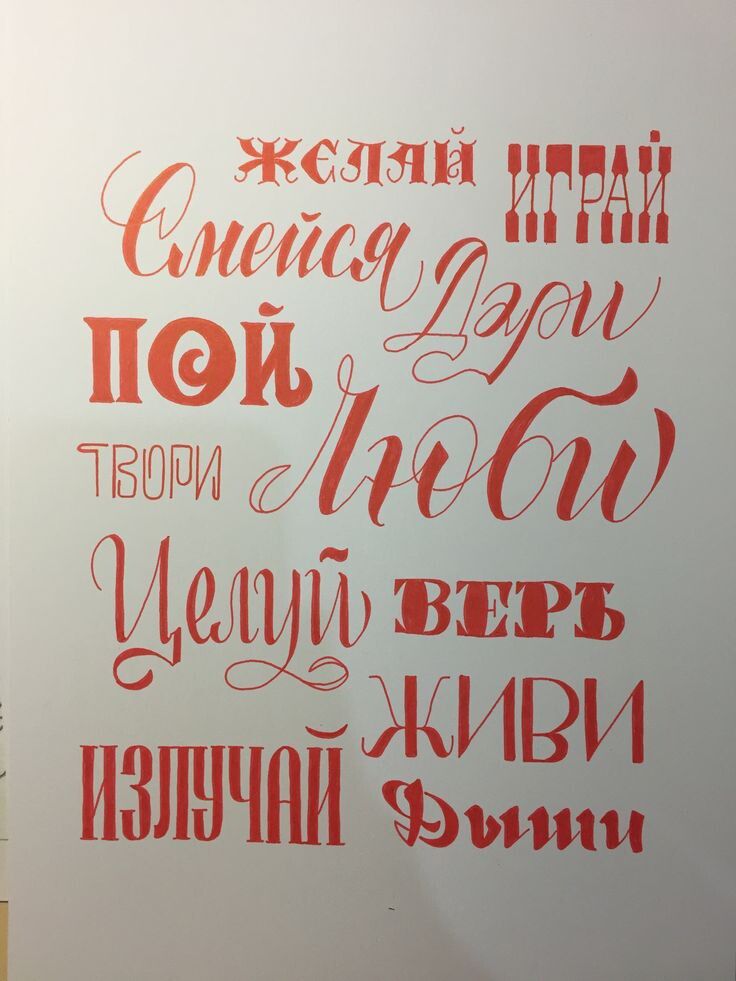 ЖЕЛАЙ
ИГРАЙ
Смейся
Дари
ПОЙ
Люби
ТВОРИ
Целуй
ВЕРЬ
ЖИВИ
ИЗЛУЧАЙ
Дыши